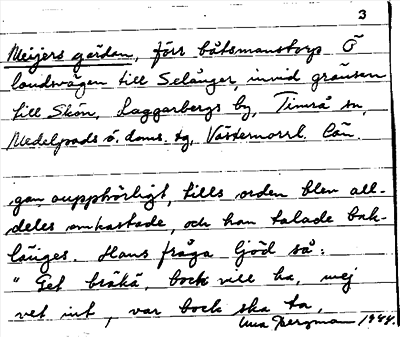 3
Meijers gärdan, förr båtsmanstorp Ö
landsvägen till Selånger, invid gränsen
till Skön, Laggarbergs by, Timrå sn,
Medelpads ö. doms. tg, Västernorrl. län.
gan oupphörligt, tills orden blev all-
deles omkastade, och han talade bak-
länges. Hans fråga ljöd så:
"Get bräkä, bock vill ha, mej
vet int, var bock ska ta,
Bergman 1944.